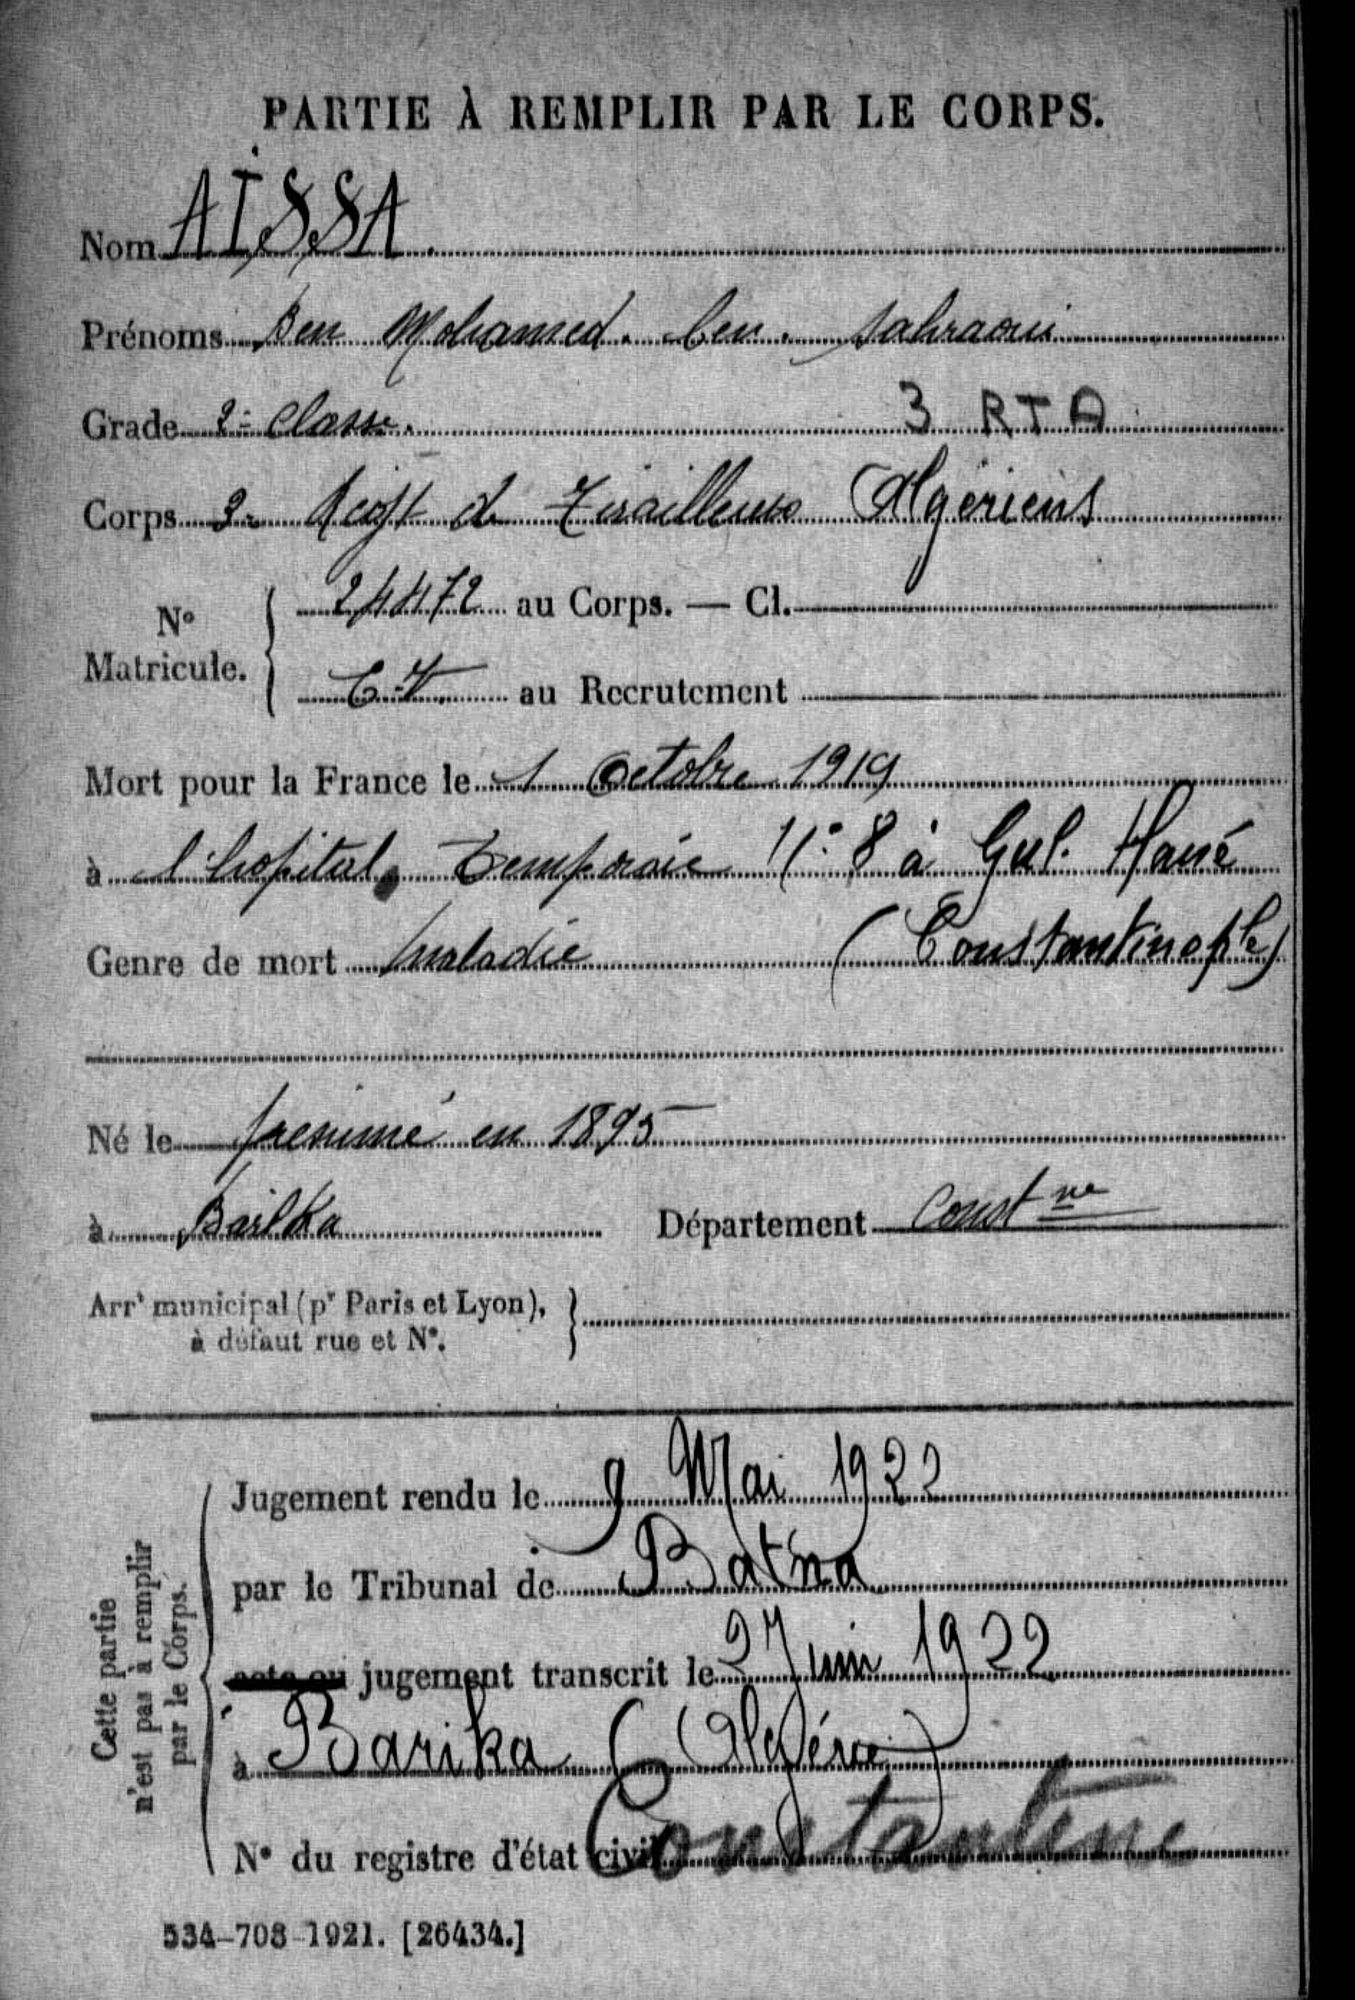 PARTIE À REMPLIR PAR LE CORPS.
Nom AÏSSA.
Prénoms Ben Mohamed. ben. Sahraoui
Grade 2e classe.
3 RTA
Corps 3e Regt de Tirailleurs Algériens
No Matricule. { 24472 au Corps. — Cl.
C.V. au Recrutement
Mort pour la France le 1 Octobre 1919
à l'hopital Temporaie No 8 à Gul. Hané
(Constantinople)
Genre de mort maladie
Né le présumé en 1895
à Barika Département Constne
Arrt municipal (pr Paris et Lyon), }
à défaut rue et No.
Cette partie
n'est pas à remplir
par le Corps.
Jugement rendu le 9 Mai 1922
par le Tribunal de Batna
acte ou jugement transcrit le 27 Juin 1922
à Barika (Algérie)
No du registre d'état civil
Constantine
534-708-1921. [26434.]